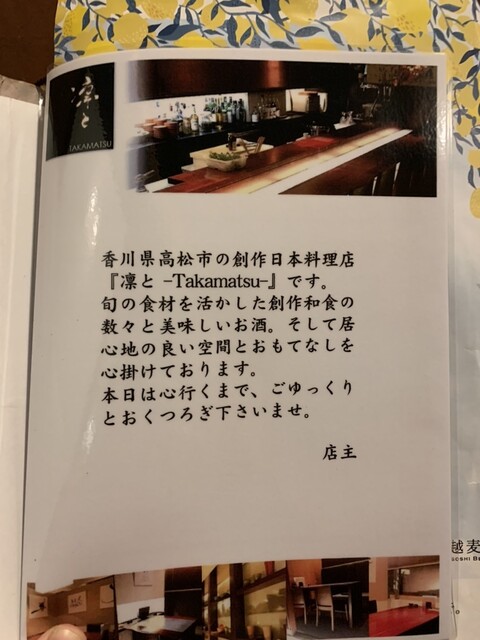 凛と
TAKAMATSU
香川県高松市の創作日本料理店
『凛と -Takamatsu-』です。
旬の食材を活かした創作和食の
数々と美味しいお酒。そして居
心地の良い空間とおもてなしを
心掛けております。
本日は心行くまで、ごゆっくり
とおくつろぎ下さいませ。
店主
越麦